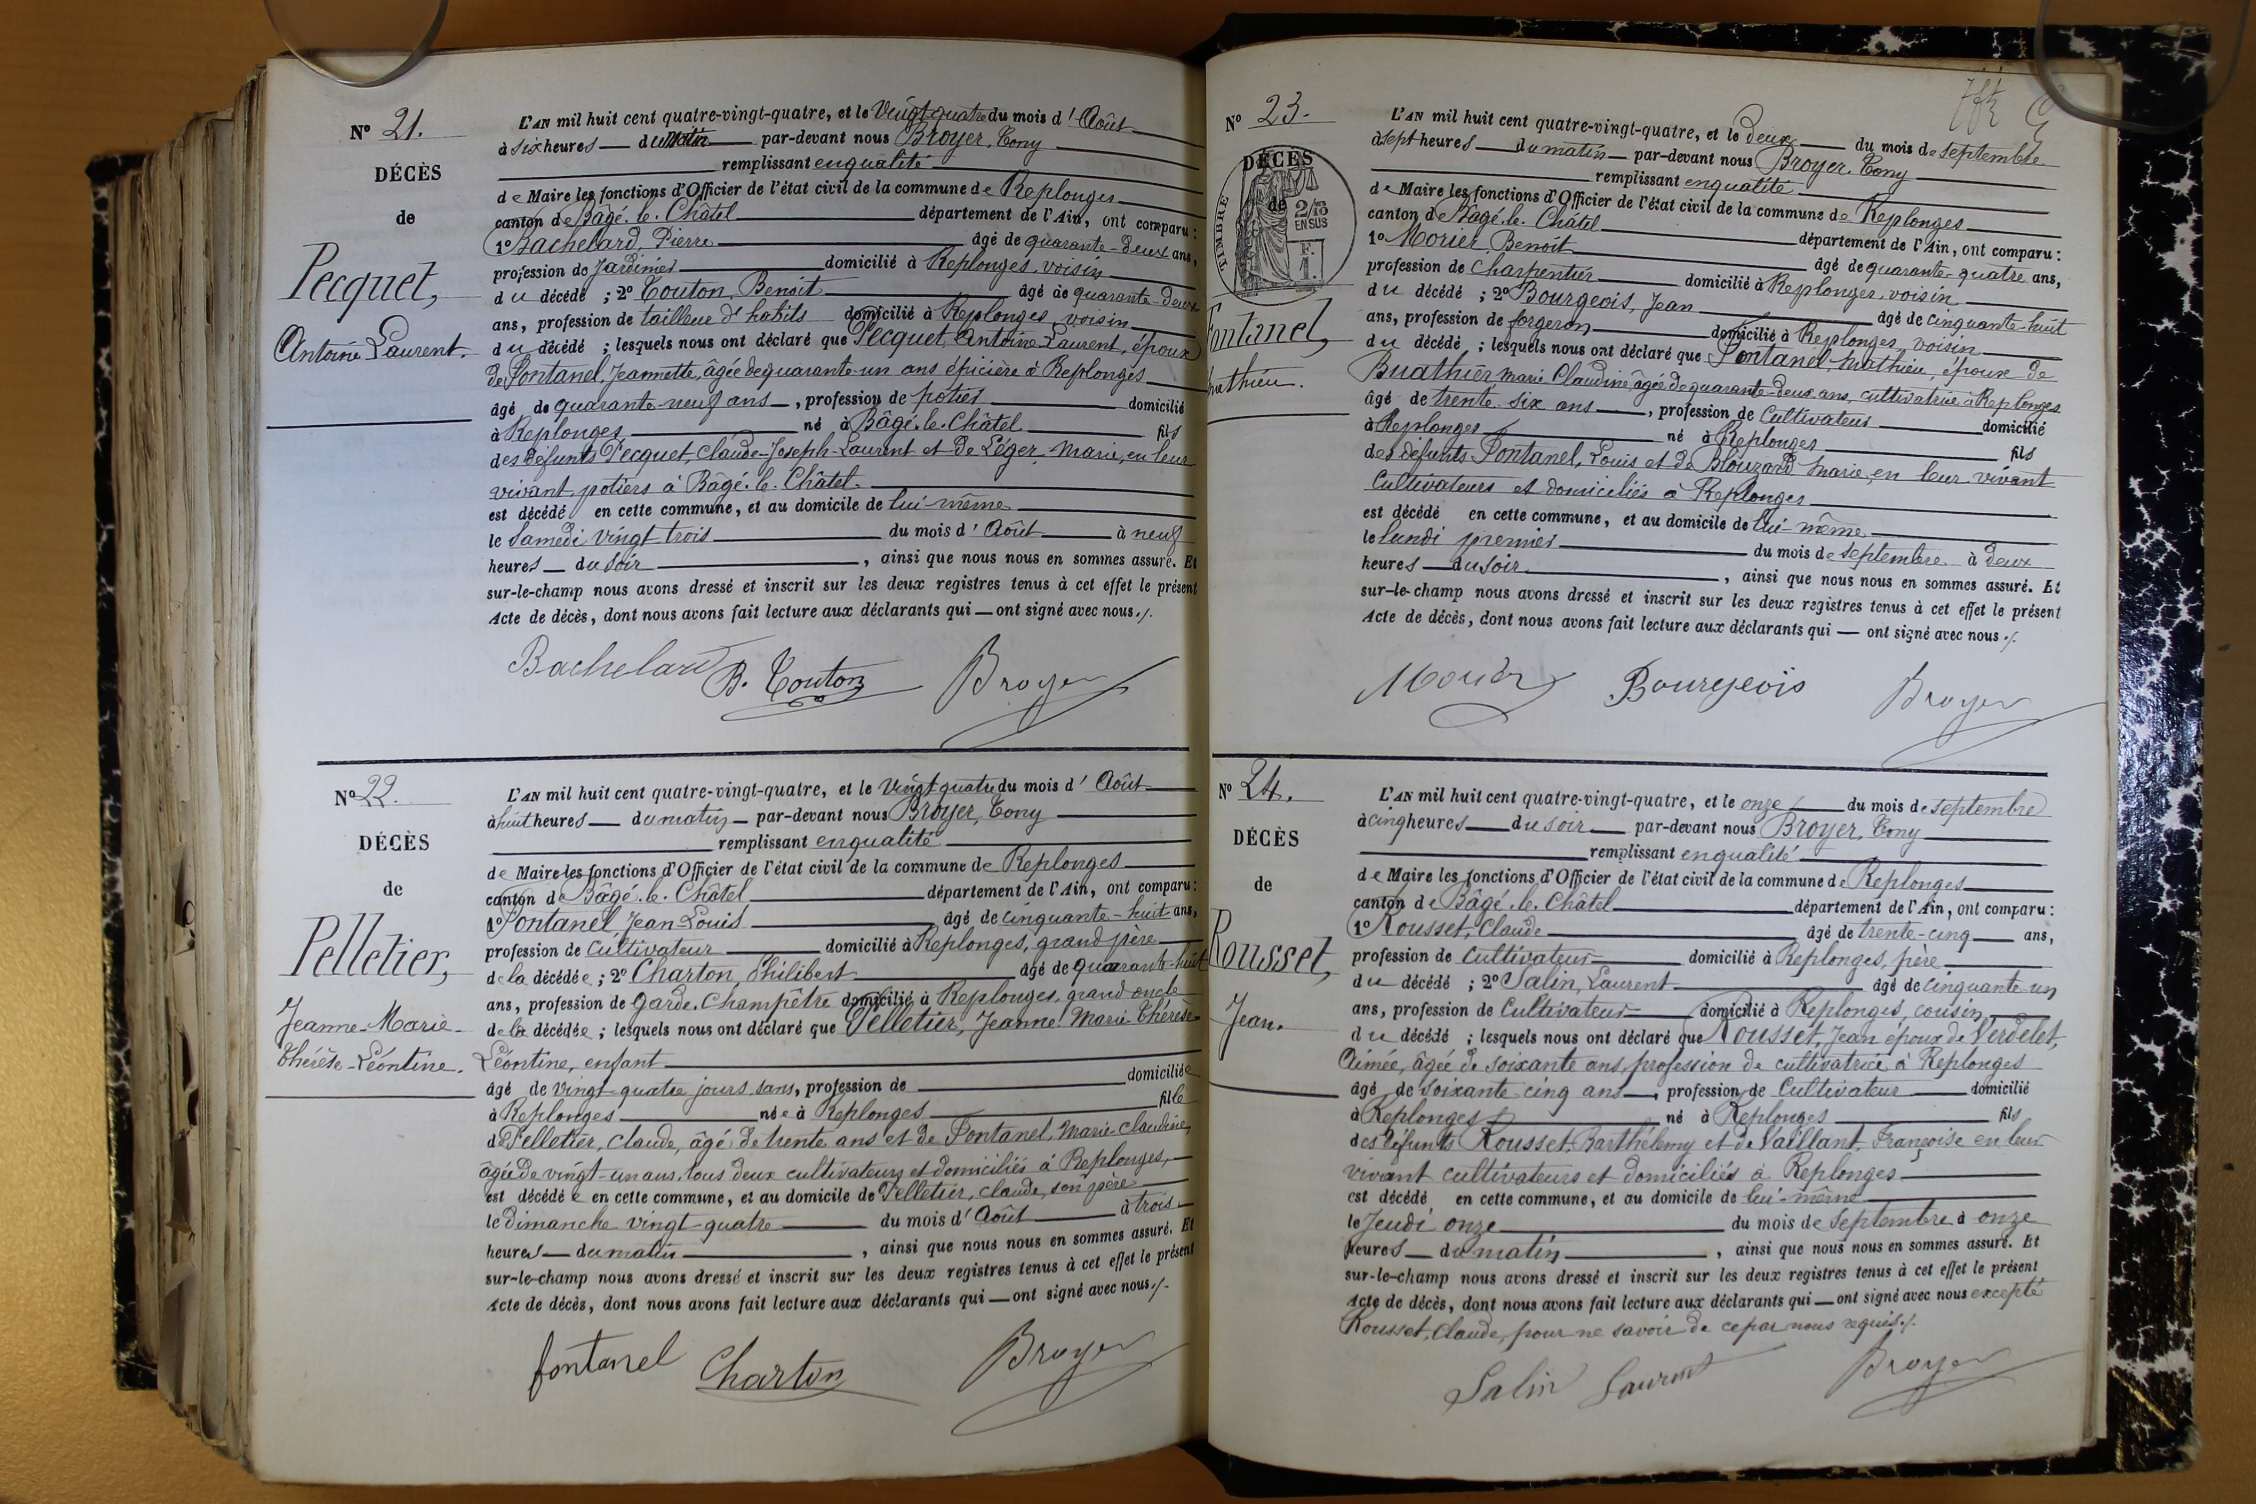 N° 21.
DÉCÈS
de
Pecquet,
Antoine Laurent.
L'AN mil huit cent quatre-vingt-quatre, et le Vingt quatre du mois d'Août
à six heures du matin par-devant nous Broyer, Tony
remplissant en qualité
de Maire les fonctions d'Officier de l'état civil de la commune de Replonges
canton de Bâgé-le-Châtel département de l'Ain, ont comparu :
1° Bachelard, Pierre âgé de quarante-deux ans,
profession de Jardinier domicilié à Replonges, voisin
du décédé ; 2° Touton, Benoit âgé de quarante-deux
ans, profession de tailleur d'habits domicilié à Replonges, voisin
du décédé ; lesquels nous ont déclaré que Pecquet, Antoine Laurent, époux
de Fontanel, Jeannette, âgée de quarante-un ans épicière à Replonges
âgé de quarante-neuf ans, profession de potier domicilié
à Replonges né à Bâgé-le-Châtel fils
des défunts Pecquet, Claude-Joseph-Laurent et de Léger, Marie, en leur
vivant potiers à Bâgé-le-Châtel.
est décédé en cette commune, et au domicile de lui-même
le Samedi vingt-trois du mois d'Août à neuf
heures du soir, ainsi que nous nous en sommes assuré. Et
sur-le-champ nous avons dressé et inscrit sur les deux registres tenus à cet effet le présent
Acte de décès, dont nous avons fait lecture aux déclarants qui ont signé avec nous./.
Bachelard B. Touton Broyer
N° 22.
DÉCÈS
de
Pelletier,
Jeanne-Marie-
Thérèse-Léontine.
L'AN mil huit cent quatre-vingt-quatre, et le Vingt quatre du mois d'Août
à huit heures du matin par-devant nous Broyer, Tony
remplissant en qualité
de Maire les fonctions d'Officier de l'état civil de la commune de Replonges
canton de Bâgé-le-Châtel département de l'Ain, ont comparu :
1° Fontanel, Jean Louis âgé de cinquante-huit ans,
profession de Cultivateur domicilié à Replonges, grand père
de la décédée ; 2° Charton, Philibert âgé de quarante-huit
ans, profession de Garde-Champêtre domicilié à Replonges, grand oncle
de la décédée ; lesquels nous ont déclaré que Pelletier, Jeanne-Marie-Thérèse-
Léontine, enfant
âgé de vingt-quatre jours sans, profession de domiciliée
à Replonges née à Replonges fille
de Pelletier, Claude, âgé de trente ans et de Fontanel, Marie-Claudine,
âgée de vingt-un ans, tous deux cultivateurs et domiciliés à Replonges,
est décédée en cette commune, et au domicile de Pelletier, Claude, son père
le dimanche vingt-quatre du mois d'Août à trois
heures du matin, ainsi que nous nous en sommes assuré. Et
sur-le-champ nous avons dressé et inscrit sur les deux registres tenus à cet effet le présent
Acte de décès, dont nous avons fait lecture aux déclarants qui ont signé avec nous./.
fontanel Charton Broyer
N° 23.
DÉCÈS
de
TIMBRE
2/10
EN SUS
F.
1.
Fontanel,
Mathieu.
L'AN mil huit cent quatre-vingt-quatre, et le deux du mois de septembre
à sept heures du matin par-devant nous Broyer, Tony
remplissant en qualité
de Maire les fonctions d'Officier de l'état civil de la commune de Replonges
canton de Bâgé-le-Châtel département de l'Ain, ont comparu :
1° Morier, Benoît âgé de quarante-quatre ans,
profession de Charpentier domicilié à Replonges, voisin
du décédé ; 2° Bourgeois, Jean âgé de cinquante-huit
ans, profession de forgeron domicilié à Replonges, voisin
du décédé ; lesquels nous ont déclaré que Fontanel, Mathieu, époux de
Buathier Marie Claudine âgée de quarante-deux ans, cultivatrice à Replonges
âgé de trente-six ans, profession de Cultivateur domicilié
à Replonges né à Replonges fils
des défunts Fontanel, Louis et de Blouzard Marie, en leur vivant
Cultivateurs et domiciliés à Replonges
est décédé en cette commune, et au domicile de lui-même
le lundi premier du mois de septembre à deux
heures du soir, ainsi que nous nous en sommes assuré. Et
sur-le-champ nous avons dressé et inscrit sur les deux registres tenus à cet effet le présent
Acte de décès, dont nous avons fait lecture aux déclarants qui ont signé avec nous./.
Morier Bourgeois Broyer
N° 24.
DÉCÈS
de
Rousset,
Jean.
L'AN mil huit cent quatre-vingt-quatre, et le onze du mois de septembre
à cinq heures du soir par-devant nous Broyer, Tony
remplissant en qualité
de Maire les fonctions d'Officier de l'état civil de la commune de Replonges
canton de Bâgé-le-Châtel département de l'Ain, ont comparu :
1° Rousset, Claude âgé de trente-cinq ans,
profession de Cultivateur domicilié à Replonges, père
du décédé ; 2° Salin, Laurent âgé de cinquante-un
ans, profession de Cultivateur domicilié à Replonges, cousin
du décédé ; lesquels nous ont déclaré que Rousset, Jean époux de Verdelet,
Aimée, âgée de soixante ans, profession de cultivatrice à Replonges
âgé de soixante cinq ans, profession de Cultivateur domicilié
à Replonges né à Replonges fils
des défunts Rousset, Barthélemy et de Vaillant, Françoise en leur
vivant cultivateurs et domiciliés à Replonges
est décédé en cette commune, et au domicile de lui-même
le Jeudi onze du mois de Septembre à onze
heures du matin, ainsi que nous nous en sommes assuré. Et
sur-le-champ nous avons dressé et inscrit sur les deux registres tenus à cet effet le présent
Acte de décès, dont nous avons fait lecture aux déclarants qui ont signé avec nous excepté
Rousset, Claude, pour ne savoir de ce par nous requis./.
Salin Laurent Broyer